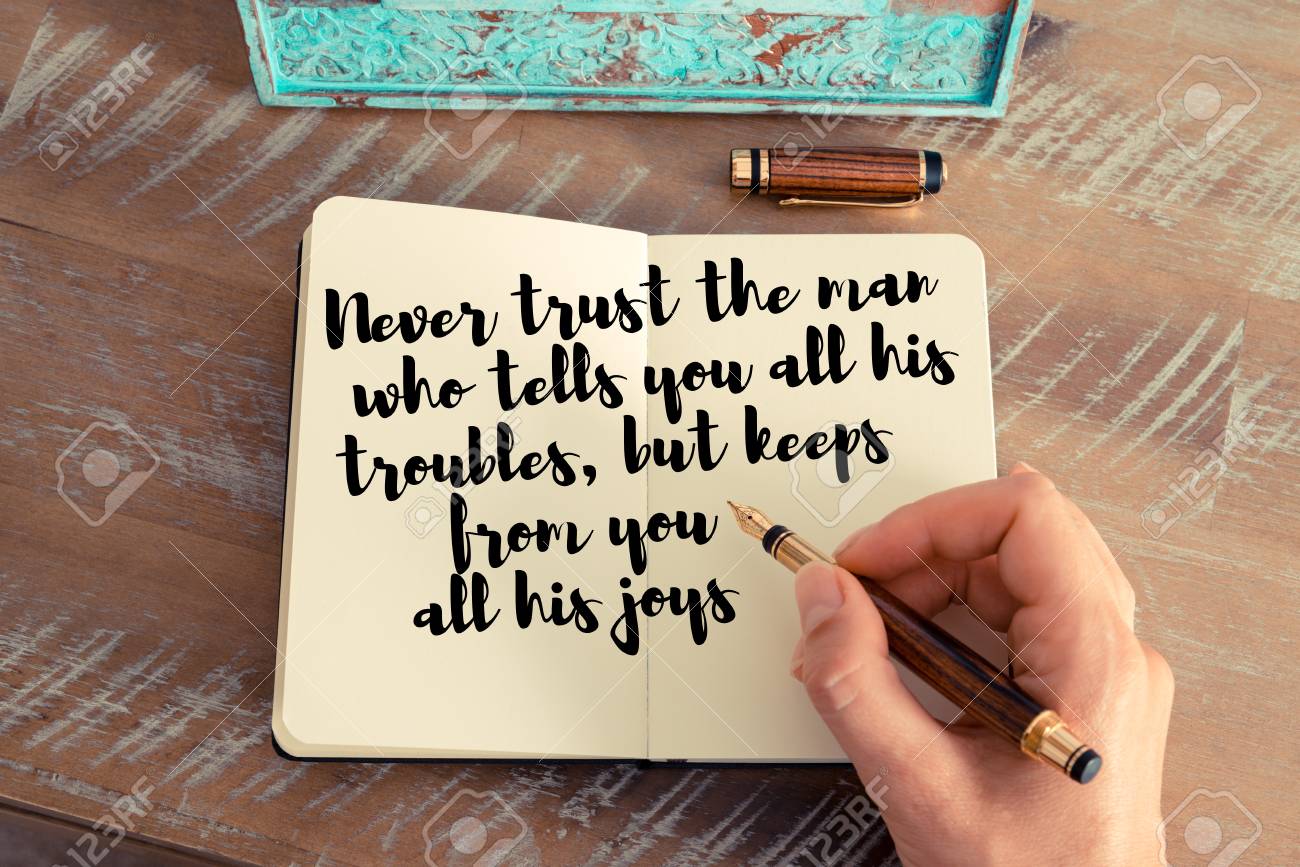 Never trust the man
who tells you all his
troubles, but keeps
from you
all his joys
123RF
123RF
123RF
123RF
123RF
123RF